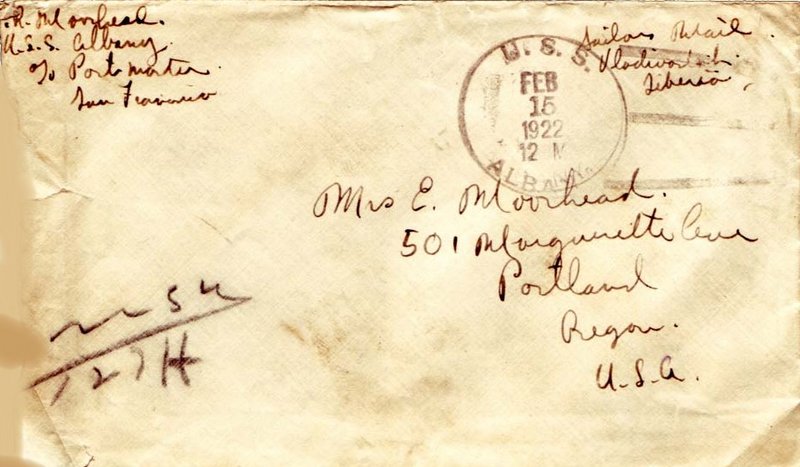 F.R. Moorhead.
U.S.S. Albany.
c/o Postmaster
San Francisco
Sailors Mail.
Vladivostok.
Siberia,
U.S.S.
FEB
15
1922
12 M
ALBANY.
Mrs E. Moorhead.
501 Marguerette Ave
Portland
Regon.
U.S.A.